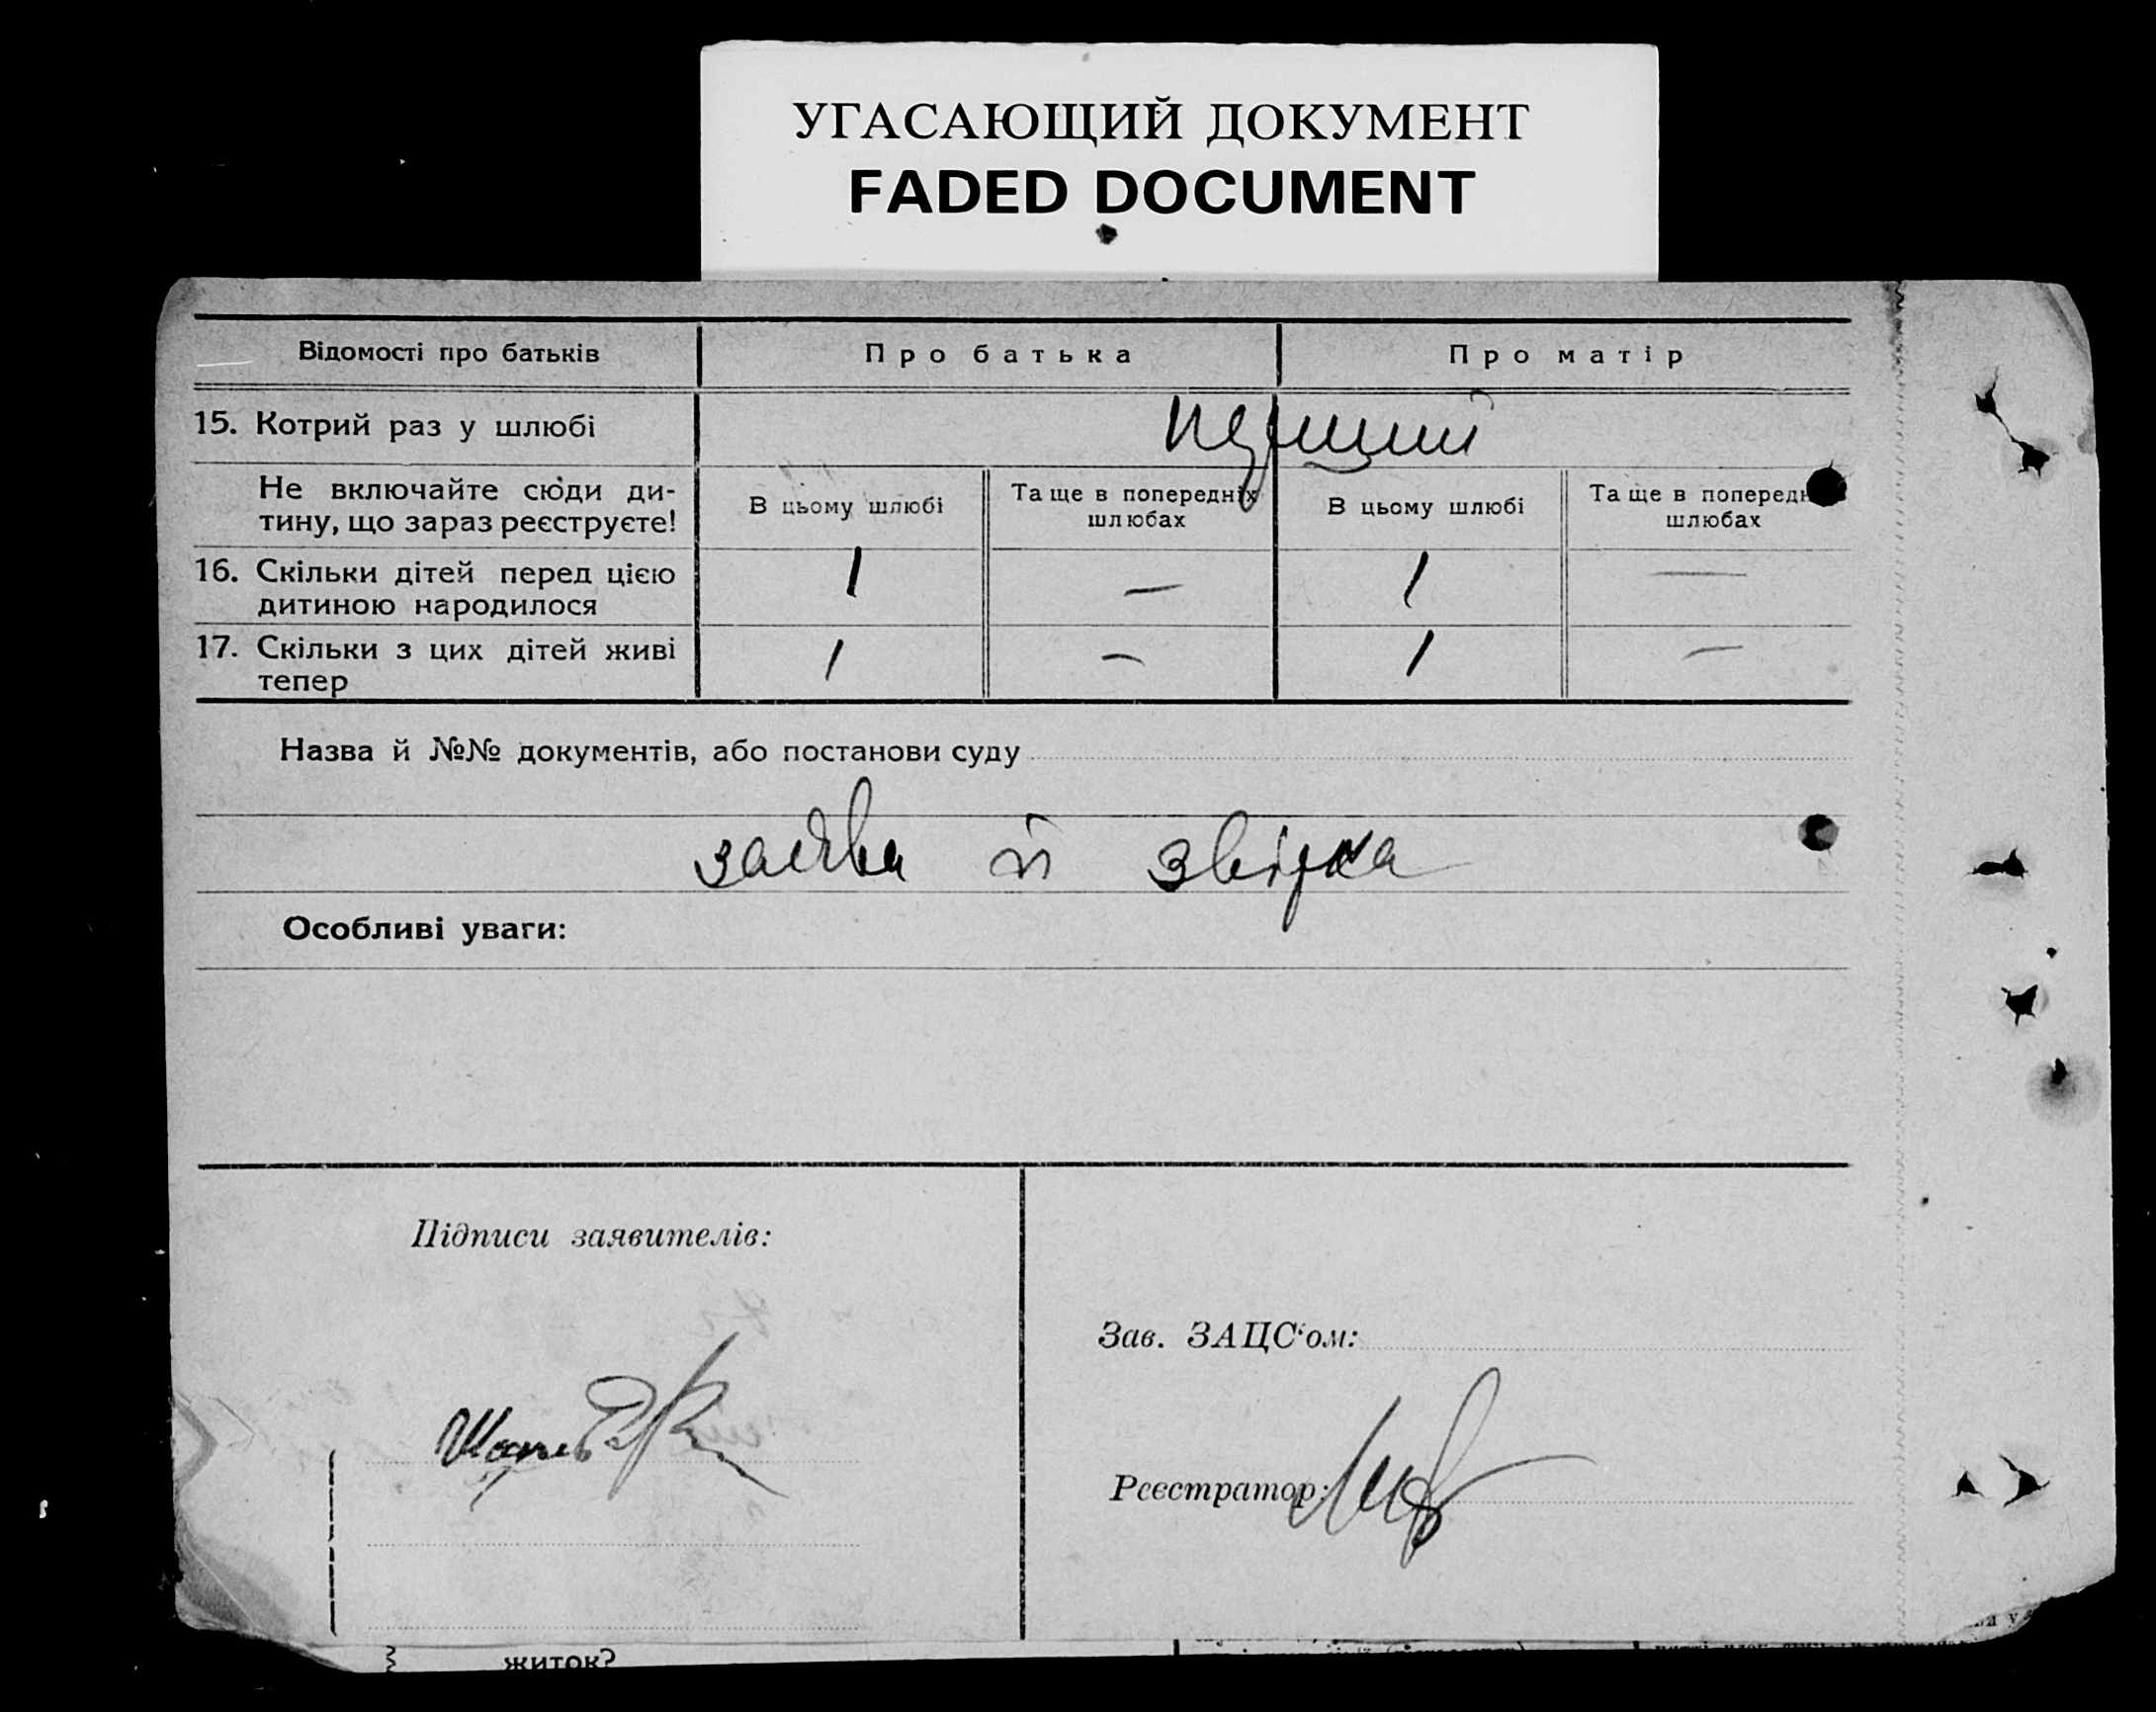 УГАСАЮЩИЙ ДОКУМЕНТ
FADED DOCUMENT
Відомості про батьків
Про батька
Про матір
15. Котрий раз у шлюбі
перший
Не включайте сюди ди-
тину, що зараз реєструєте!
В цьому шлюбі
Та ще в попередніх
шлюбах
В цьому шлюбі
Та ще в попередн
шлюбах
16. Скільки дітей перед цією
дитиною народилося
1
—
1
—
17. Скільки з цих дітей живі
тепер
1
—
1
—
Назва й №№ документів, або постанови суду
заява й звірка
Особливі уваги:
Підписи заявителів:
Зав. ЗАЦС‘ом:
Реєстратор:
житок?